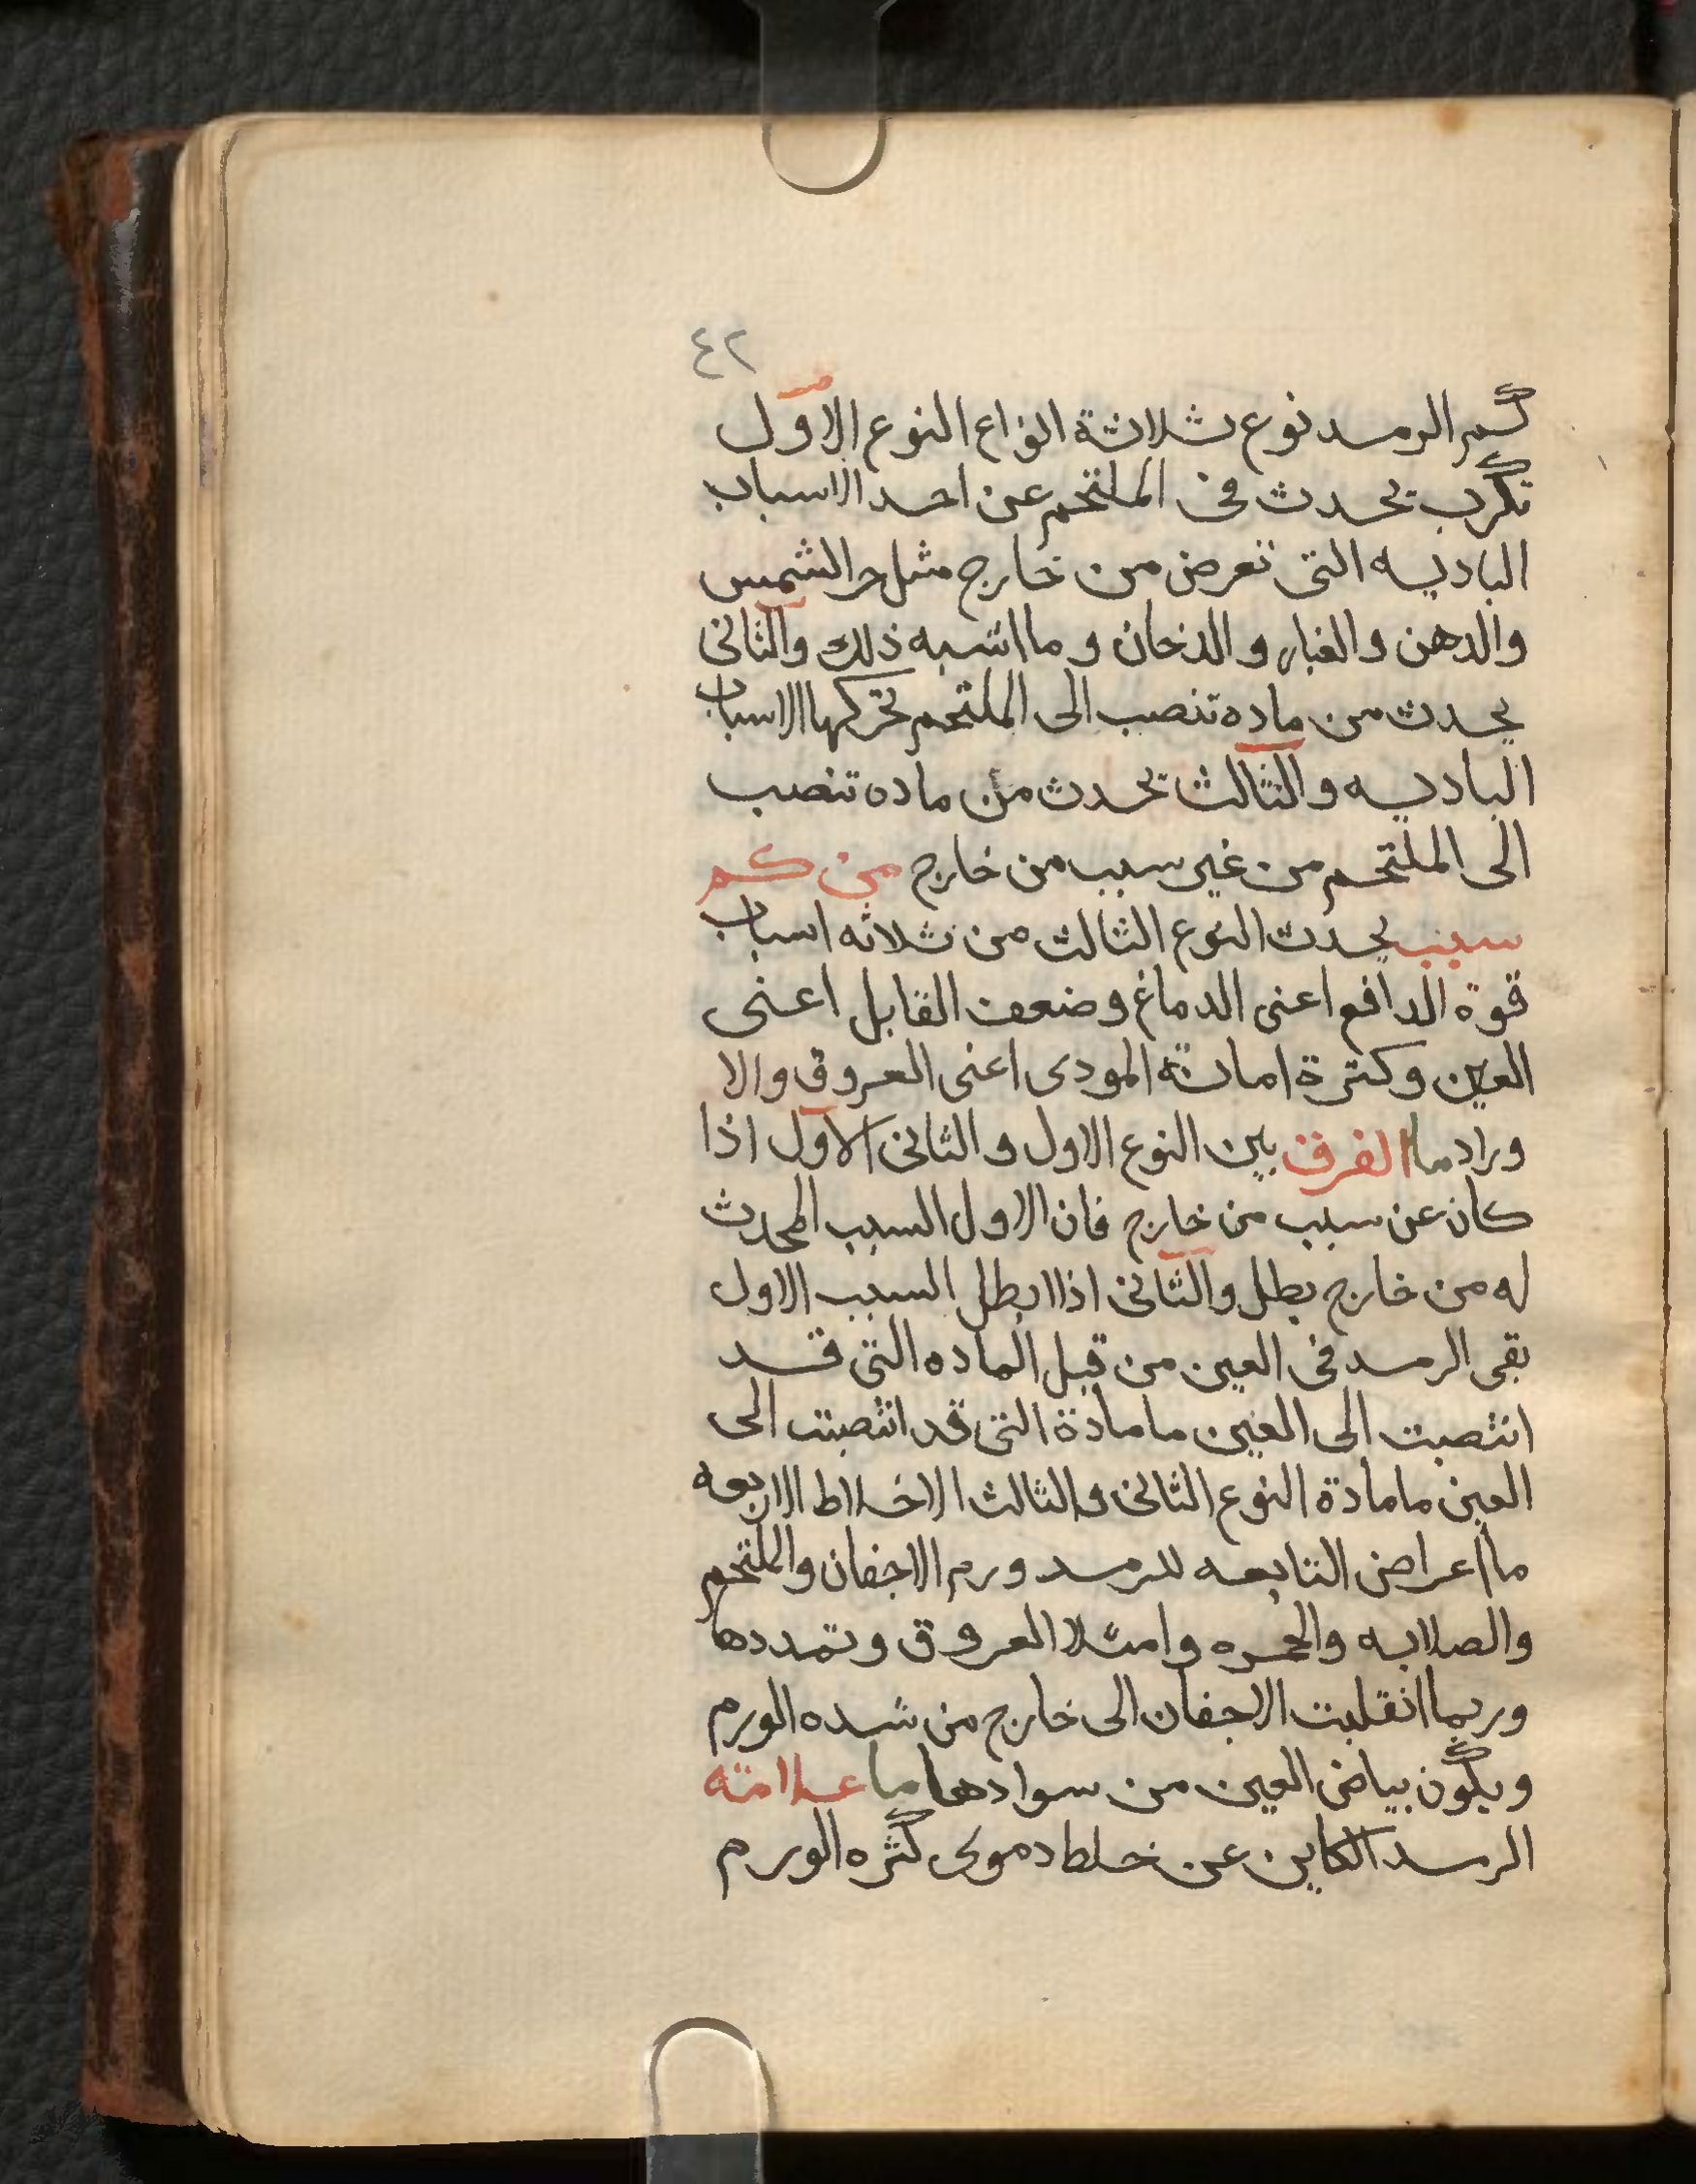 ٤٢
كم الرمد نوع ثلاثة انواع النوع الاول
تكرب يحدث فى الملتحم عن احد الاسباب
الباديه التى تعرض من خارج مثل حر الشمس
والدهن والغبار والدخان وما اشبه ذلك والثانى
يحدث من ماده تنصب الى الملتحم تحركها الاسباب
الباديه والثالث يحدث من ماده تنصب
الى الملتحم من غير سبب من خارج من كم
سبب يحدث النوع الثالث من ثلاثه اسباب
قوة الدافع اعنى الدماغ وضعف القابل اعنى
العين وكثرة المودى اعنى العروق والا
وراد ما الفرق بين النوع الاول والثانى الاول اذا
كان عن سبب من خارج فان الاول السبب المحدث
له من خارج بطل والثانى اذا ابطل السبب الاول
بقى الرمد فى العين من قبل الماده التى قد
انتصبت الى العين ما مادة التى قد انتصبت الى
العين ما مادة النوع الثانى والثالث الاخلاط الاربعه
ما اعراض التابعه للرمد ورم الاجفان والملتحم
والصلابه والحمره وامتلا العروق وتمددها
وربما انقلبت الاجفان الى خارج من شده الورم
ويكون بياض العين من سوادها ما علامته
الرمد الكاين عن خلط دموى كثره الورم